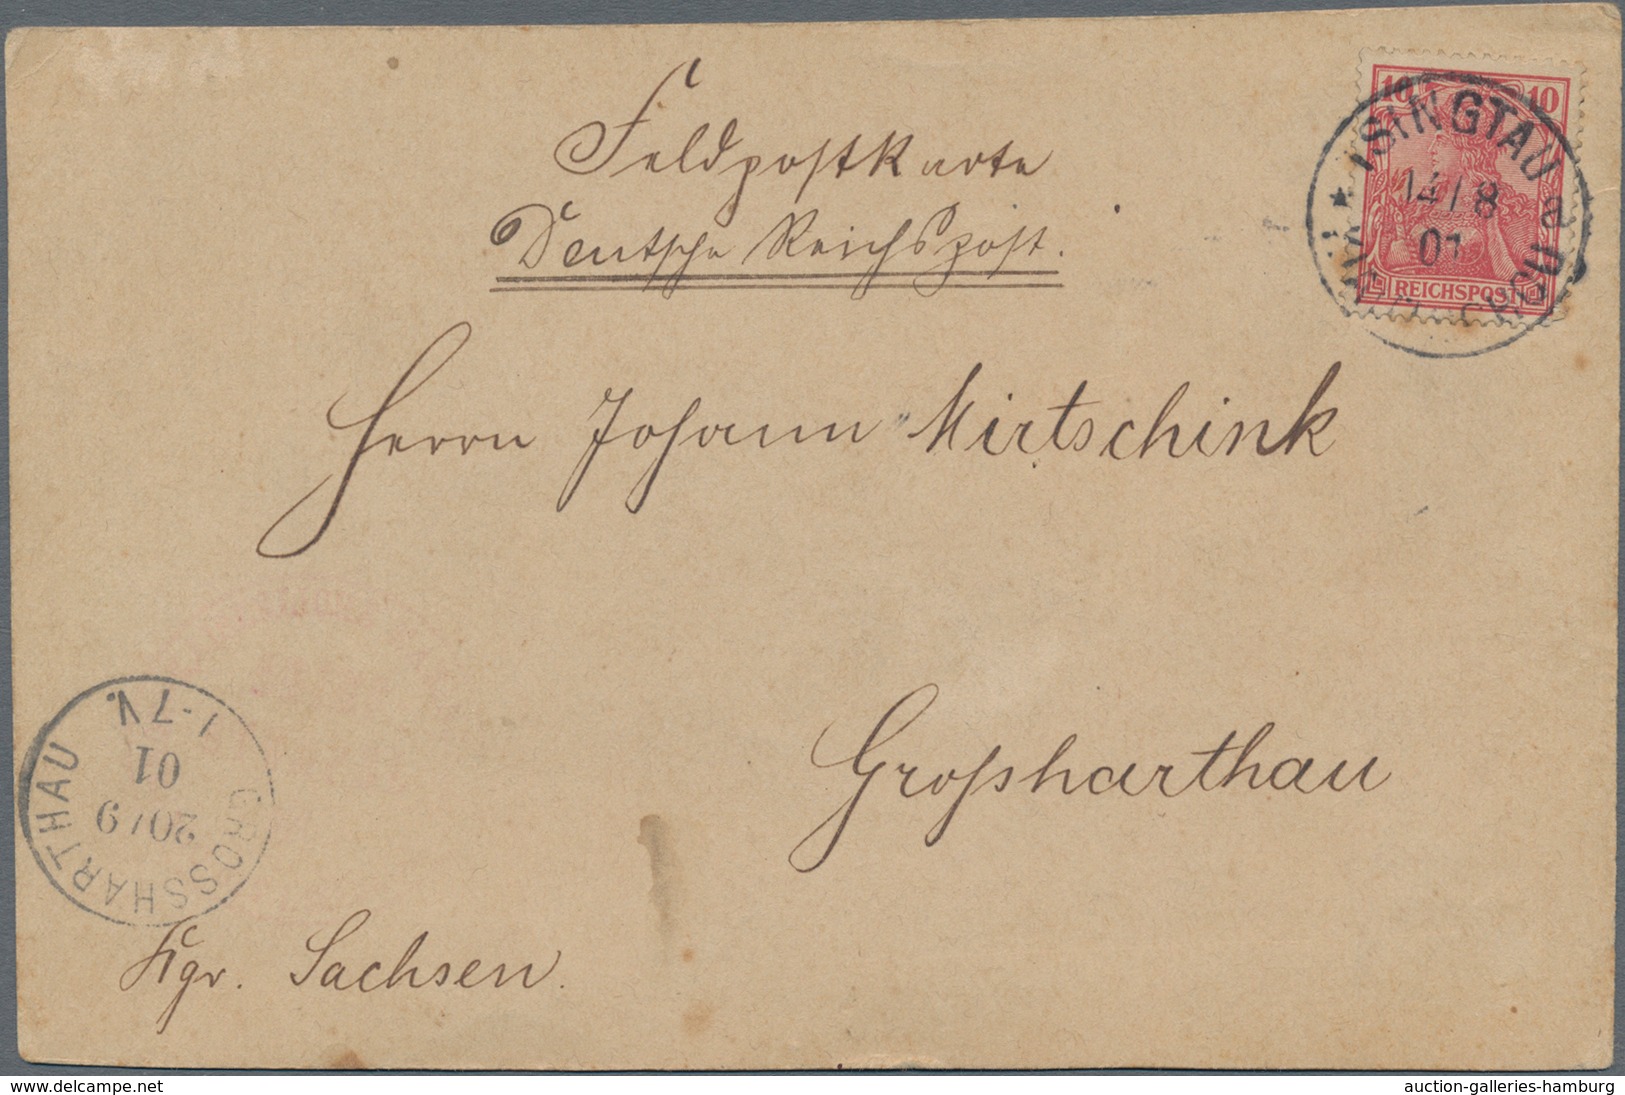 Feldpostkarte
Deutsche Reichspost.
10 10
REICHSPOST
TSINGTAU
14/8
01
a
KIAUTSCHOU
Herrn Johann Mirtschink
Großharthau
GROSSHARTHAU
20/9
01
1-7N.
Kgr. Sachsen.
www.delcampe.net
auction-galleries-hamburg